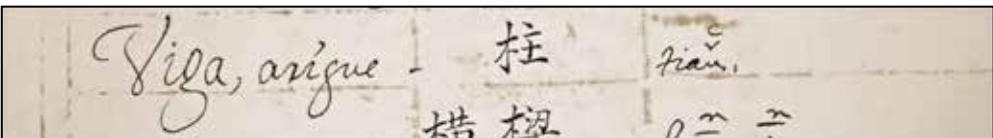 Viga, arigue - 柱 tiău.
橫樑